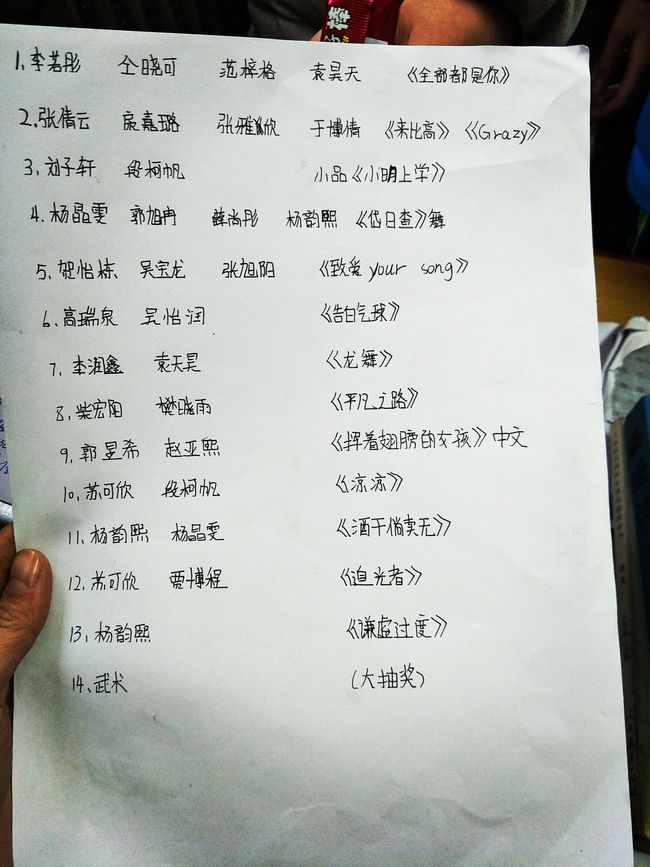 棒
1.李若彤 仝晓可 范梓格 袁昊天 《全部都是你》
2.张倩云 扆嘉璐 张雅欣 于博倩 《来比高》 《Grazy》
3.刘子轩 段柯帆 小品《小明上学》
4.杨晶雯 郭旭冉 薛尚彤 杨韵熙 《岱日查》舞
5.贺怡栋 吴宝龙 张旭阳 《致爱 your song》
6.高瑞泉 吴怡润 《告白气球》
7.李润鑫 袁天昊 《龙舞》
8.柴宏阳 樊晓雨 《平凡之路》
9.郭昱希 赵亚熙 《挥着翅膀的女孩》中文
10.苏可欣 段柯帆 《凉凉》
11.杨韵熙 杨晶雯 《酒干倘卖无》
12.苏可欣 贾博程 《追光者》
13.杨韵熙 《谦虚过度》
14.武术 (大抽奖)